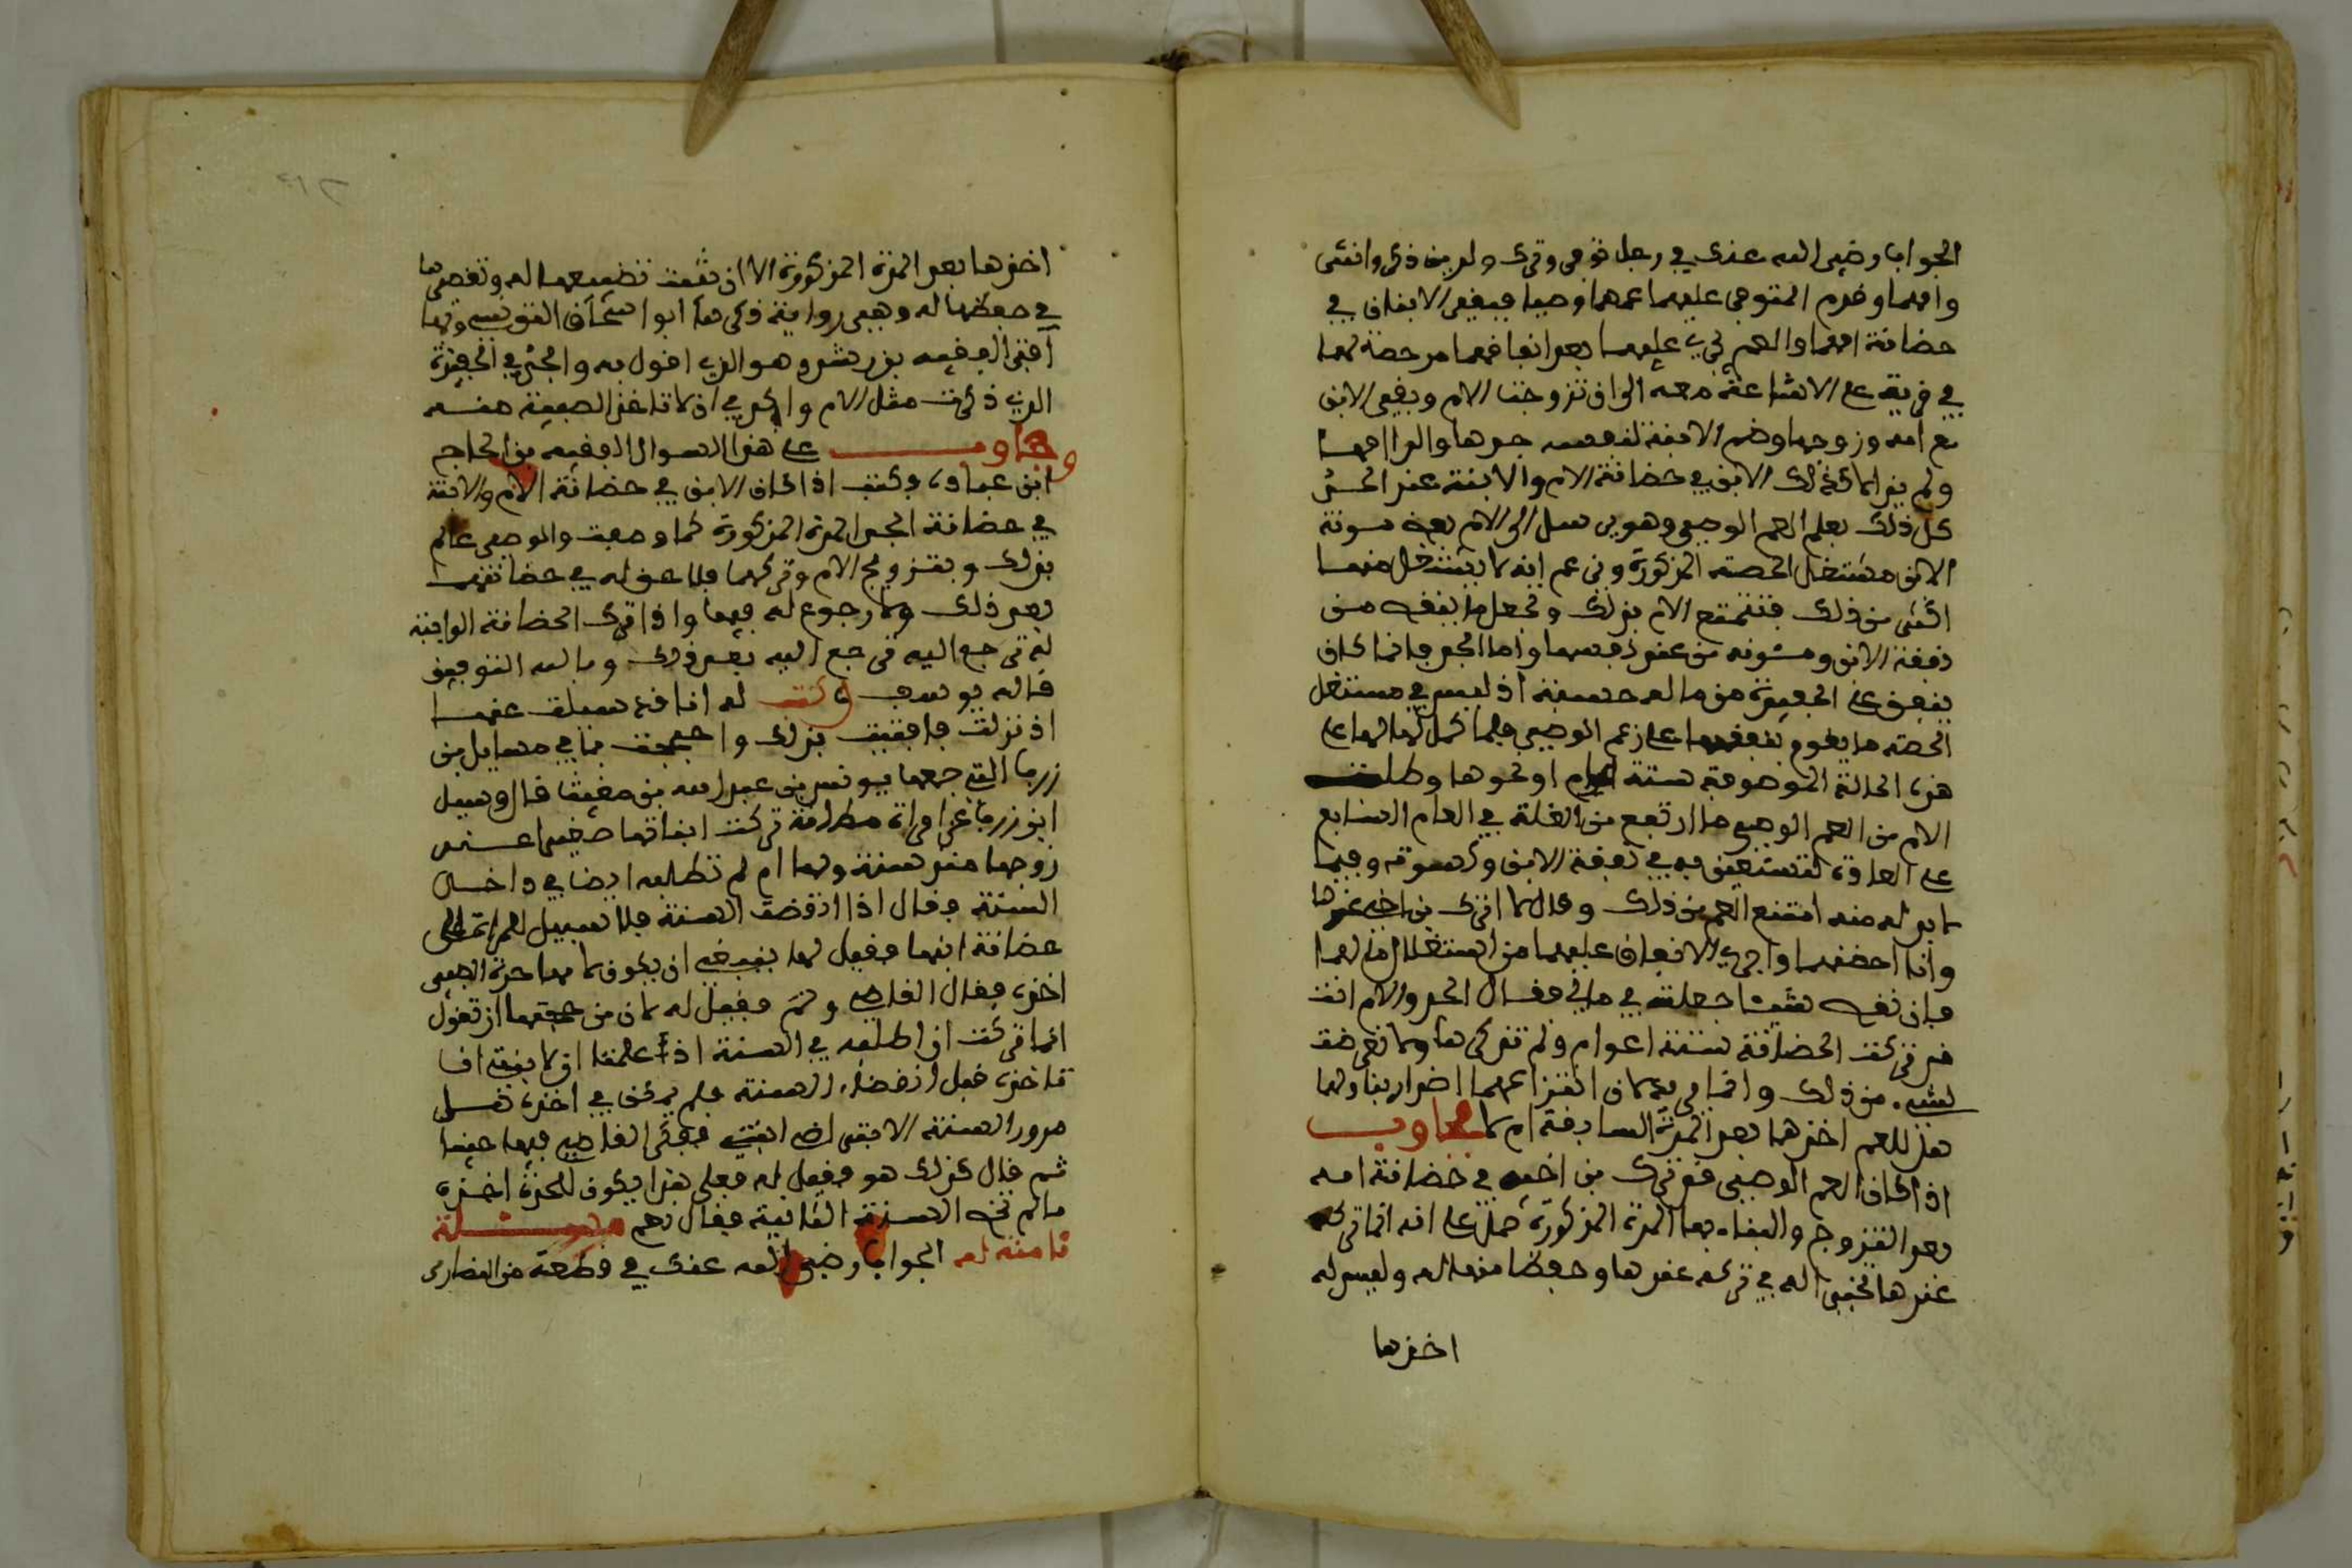 الجواب رضي الله عنك في رجل توفي وترك ولدين ذكر وانثى
وامهما وقدم المتوفى عليهما عمهما وصيا فبقي الابنان في
حضانة امهما والعم يجري عليهما بعد انفاقهما من حصة لهما
في قرية على الاشاعة معه الى ان تزوجت الام وبقي الابن
مع امه وزوجها وضم الابنة لنفسه جدها والد امهما
ولم يزالا كذلك الابن في حضانة الام والابنة عند الجد
كل ذلك بعلم العم الوصي وهو يرسل الى الام بعض مؤنة
الابن من مستغل الحصة المذكورة وزعم انه لا يستغل منها
اكثر من ذلك فتقنع الام بذلك وتحمل ما ينقص من
نفقة الابن ومئونه من عند نفسها واما الجد فانما كان
ينفق على الحفيدة من ماله حسبة اذ ليس في مستغل
الحصة ما يقوم بنفقتهما على زعم الوصي فلما كمل لهما على
هذه الحالة الموصوفة ستة اعوام او نحوها وطلبت
الام من العم الوصي ما ارتفع من الغلة في العام السابع
على العادة لتستعين به في نفقة الابن وكسوته وفيما
لا بد له منه امتنع العم من ذلك وقال لا اترك بن اخي عندها
وانا احضنهما واجري الانفاق عليهما من استغلال مالهما
فان نقص شيئا جعلته في مالي فقال الجد والام انت
قد تركت الحضانة ستة اعوام ولم تذكرها ولا تعرضت
لشيء من ذلك وانما مرغوبك الان انتزاعهما اضرار بنا ولهما
هل للعم اخذهما بعد المدة السابقة ام لا فجاوب
اذا كان العم الوصي قد ترك بن اخيه في حضانة امه
بعد التزوج والبناء بها المدة المذكورة حمل على انه انما تركه
عندها لخير له في تركه عندها وحفظا منها له وليس له
اخذها
اخذها بعد المدة المذكورة الا ان يثبت تضييعها له وتقصيرها
في حفظها له وهي رواية ذكرها ابو اسحاق التونسي وبها
افتى الفقيه بن رشد وهو الذي اقول به والجد في الحفيدة
الذي ذكرت مثل الام واحرى ان لا تاخذ الصبية منه
وجاوب على هذا السوال الفقيه بن الحاج
ابن عباد، وكتب اذا كان الابن في حضانة الام والابنة
في حضانة الجد المدة المذكورة كما وصفت والوصي عالم
بذلك وبتزويج الام وتركهما فلا حق له في حضانتهما
بعد ذلك ولا رجوع له فيها واذا ترك الحضانة الواجبة
له ترجع اليه ترجع اليه بعد ذلك وبالله التوفيق
قاله يوسف وكتب له انا في سبلت عنها
اذ نزلت فافتيت بذلك واحتججت بما في مسايل بن
زرب التي جمعها يونس بن عبد الله بن مغيث قال وسيل
ابن زرب عن امراة مطلقة تركت ابنا لها صغيرا عند
زوجها منذ سنة ولها ام لم تطلبه ايضا في داخل
السنة فقال اذا انقضت السنة فلا سبيل للمراة الى
حضانة ابنها فقيل لها ينبغي ان يكون لامها جدة الصبي
اخذه فقال القاضي ولم فقيل له لان من حجتها ان تقول
انما تركت ان اطلبه في السنة اذ علمت ان لابنتي ان
تاخذه قبل انقضاء السنة فلم يمكني اخذه قبل
مرور السنة الا بقى لي ابنتي ففكر القاضي فيها حينا
ثم قال كذلك هو فقيل له فعلى هذا يكون للجدة اخذه
ما لم تمض السنة الثانية فقال نعم مسئلة
ثامنة له الجواب رضي الله عنك في قطعة من النصارى